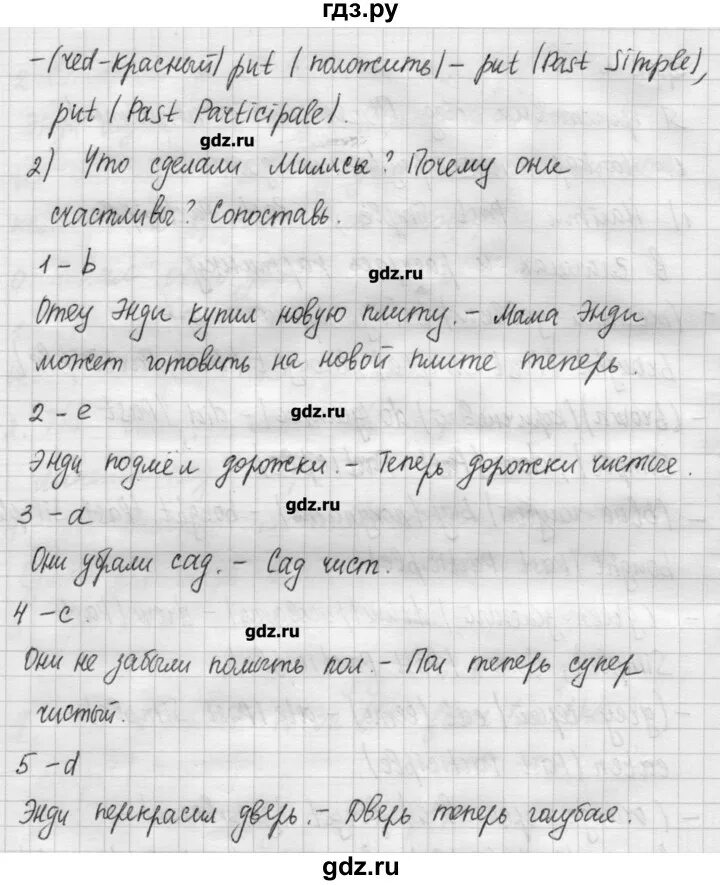 гдз.ру
-(red-красный) put (положить)- put (Past Simple),
put (Past Participale).
gdz.ru
2) Что сделали Милисы? Почему они
счастливы? Сопоставь.
1-b
gdz.ru
Отец Энди купил новую плиту.- Мама Энди
может готовить на новой плите теперь.
2-e
gdz.ru
Энди подмёл дорожки.- Теперь дорожки чистые.
gdz.ru
3-a
Они убрали сад.- Сад чист.
4-c
gdz.ru
Они не забыли помыть пол.- Пол теперь супер
чистый.
5-d
Энди перекрасил дверь.- Дверь теперь голубая.
gdz.ru